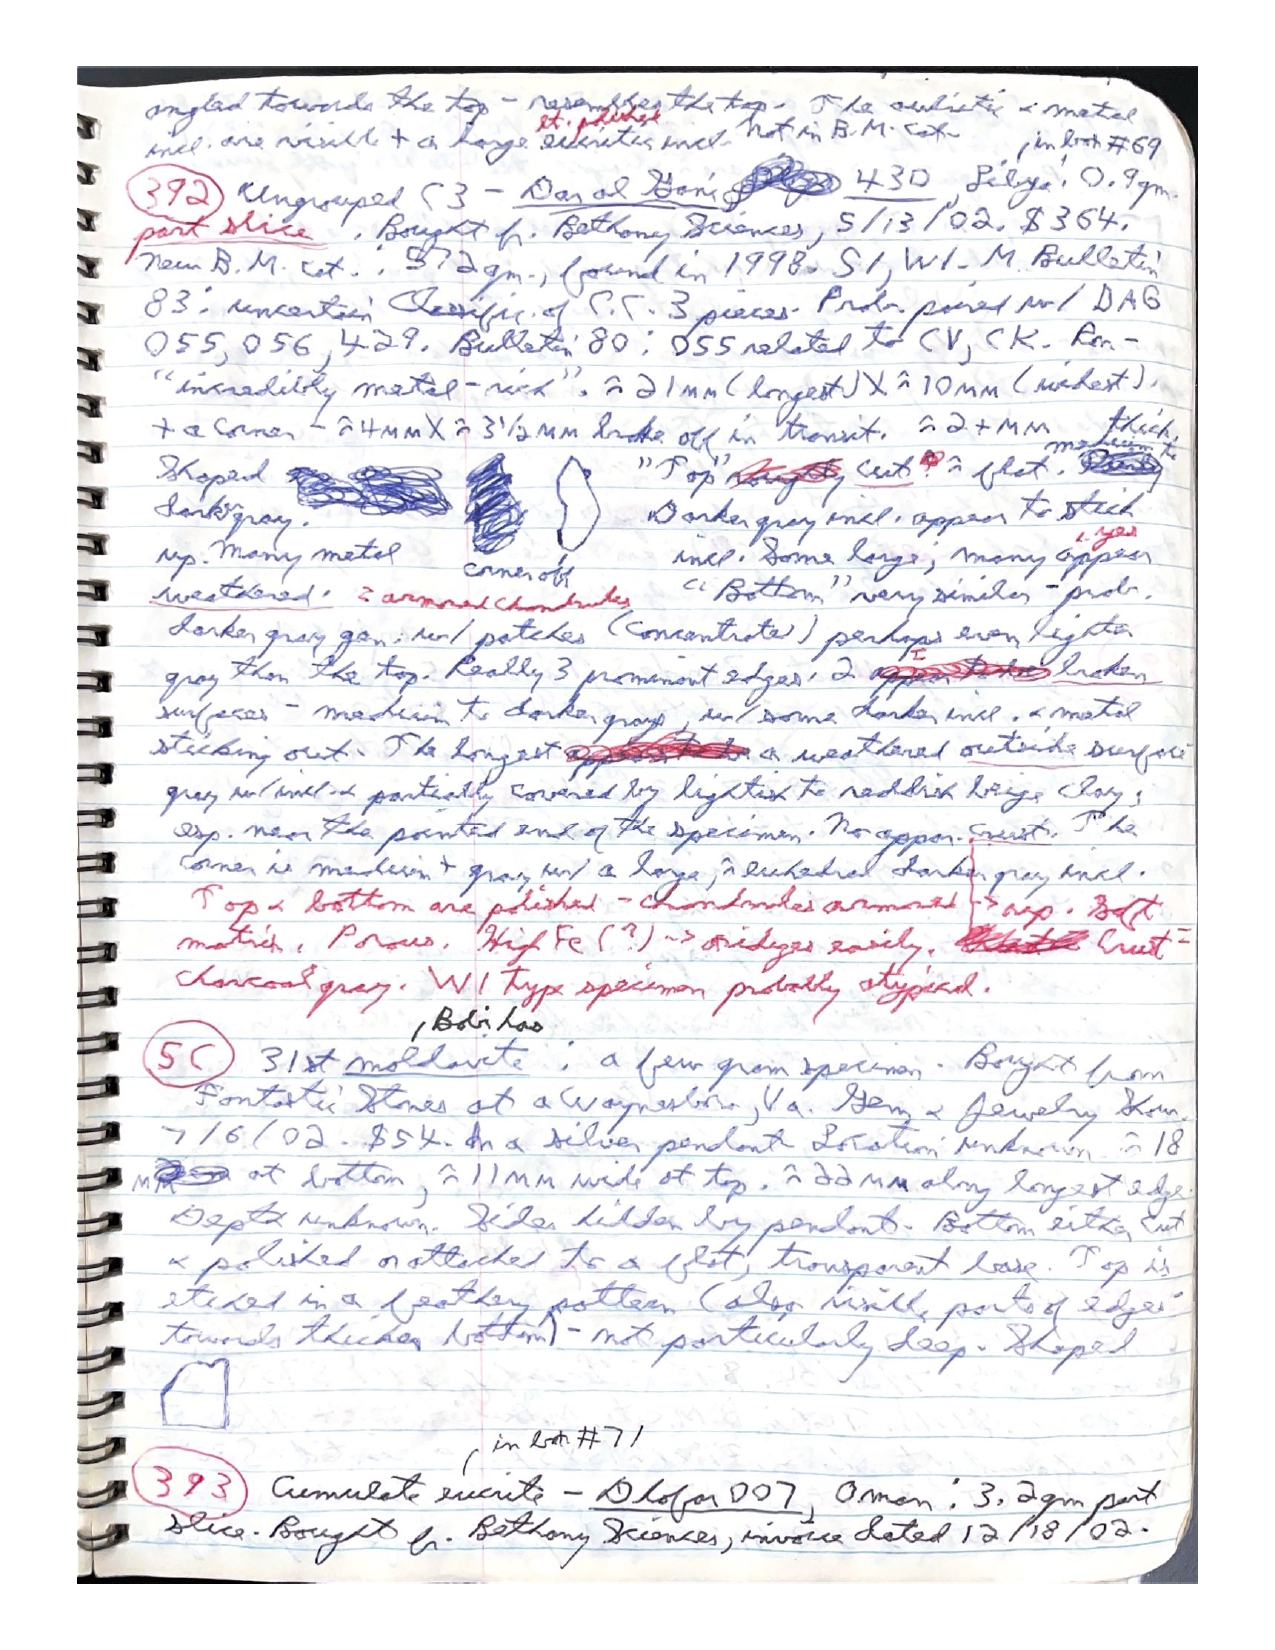 angled towards the top - resembles the top. The eucritic & metal
et. polished
incl. are visible + a large eucritic incl. Not in B.M. Cat.
, in box #69
392 Ungrouped C3 - Dar al Gani 430, Libya: 0.9gm.
part slice. Bought fr. Bethany Sciences, 5/13/02. $364.
New B.M. Cat.: 572gm., found in 1998. S1, W1. M. Bulletin
83: uncertain Classific. of C.C. 3 pieces. Prob. paired w/ DAG
055, 056, 429. Bulletin 80: 055 related to CV, CK. Ron-
"incredibly metal-rich". ≈21mm (longest) X ≈10mm (widest).
+ a corner - ≈4mm X ≈3 1/2 mm broke off in transit. ≈2+mm thick.
medium to
Shaped "Top" cut ≈ flat.
dark gray. Darker gray incl. appear to stick
, yes
up. Many metal incl. Some large; many appear
corner off
weathered. = armored chondrules "Bottom" very similar - prob.
darker gray gen. w/ patches (concentrate) perhaps even lighter
gray than the top. Really 3 prominent edges. 2 broken
surfaces - medium to darker gray, w/ some darker incl. & metal
sticking out. The longest a weathered outside surface
gray w/ incl. & partially covered by lightish to reddish beige clay,
esp. near the pointed end of the specimen. No appar. crust. The
corner is medium + gray w/ a large, ≈ euhedral darker gray incl.
Top & bottom are polished - chondrules armored -> up. Soft
matrix. Porous. High Fe (?) -> oxidizes easily. Crust =
charcoal gray. W1 type specimen probably atypical.
, Bobi has
5C 31st moldavite: a few gram specimen. Bought from
Fantastic Stones at a Waynesboro, Va. Gem & Jewelry Show.
7/6/02. $54. In a silver pendant. Location unknown. ≈18
mm at bottom, ≈11mm wide at top. ≈22mm along longest edge.
Depth unknown. Sides hidden by pendant. Bottom either cut
& polished or attached to a flat, transparent base. Top is
etched in a feathery pattern (also visible, parts of edges
towards thicker bottom) - not particularly deep. Shaped
, in box #71
393 Cumulate eucrite - Dhofar 007, Oman: 3.2gm part
slice. Bought fr. Bethany Sciences, invoice dated 12/18/02.